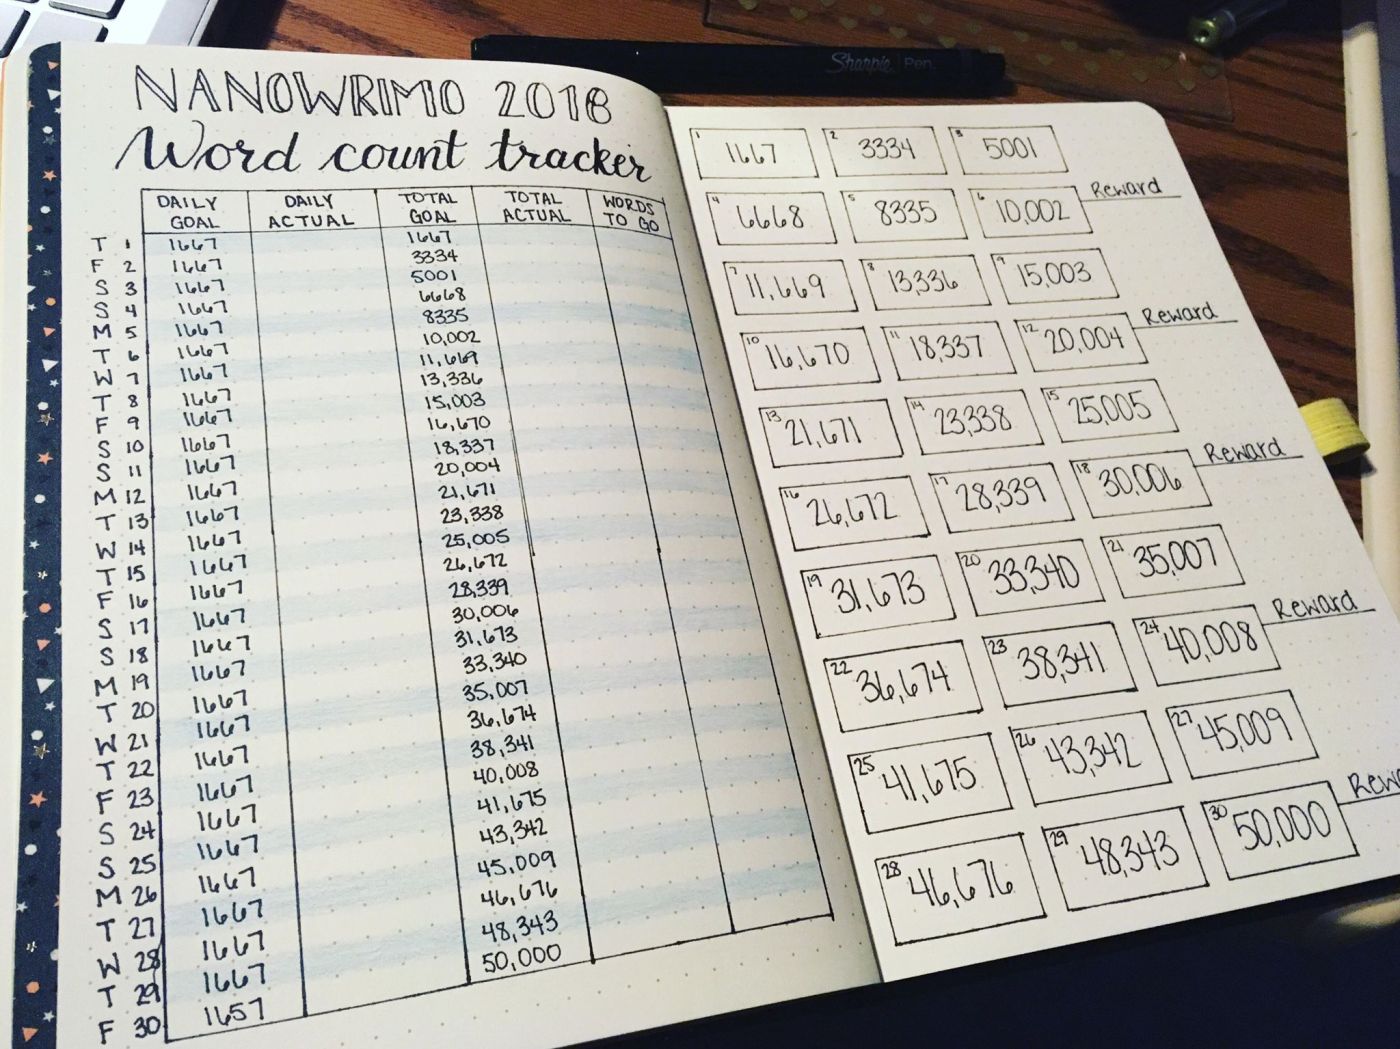 Sharpie Pen.
NANOWRIMO 2018
Word count tracker
DAILY GOAL DAILY ACTUAL TOTAL GOAL TOTAL ACTUAL WORDS TO GO
T 1 1667 1667
F 2 1667 3334
S 3 1667 5001
S 4 1667 6668
M 5 1667 8335
T 6 1667 10,002
W 7 1667 11,669
T 8 1667 13,336
F 9 1667 15,003
S 10 1667 16,670
S 11 1667 18,337
M 12 1667 20,004
T 13 1667 21,671
W 14 1667 23,338
T 15 1667 25,005
F 16 1667 26,672
S 17 1667 28,339
S 18 1667 30,006
M 19 1667 31,673
T 20 1667 33,340
W 21 1667 35,007
T 22 1667 36,674
F 23 1667 38,341
S 24 1667 40,008
S 25 1667 41,675
M 26 1667 43,342
T 27 1667 45,009
W 28 1667 46,676
T 29 1667 48,343
F 30 1657 50,000
1 1667 2 3334 3 5001
Reward
4 6668 5 8335 6 10,002
7 11,669 8 13,336 9 15,003
Reward
10 16,670 11 18,337 12 20,004
13 21,671 14 23,338 15 25,005
Reward
16 26,672 17 28,339 18 30,006
19 31,673 20 33,340 21 35,007
Reward
22 36,674 23 38,341 24 40,008
25 41,675 26 43,342 27 45,009
Rew
28 46,676 29 48,343 30 50,000